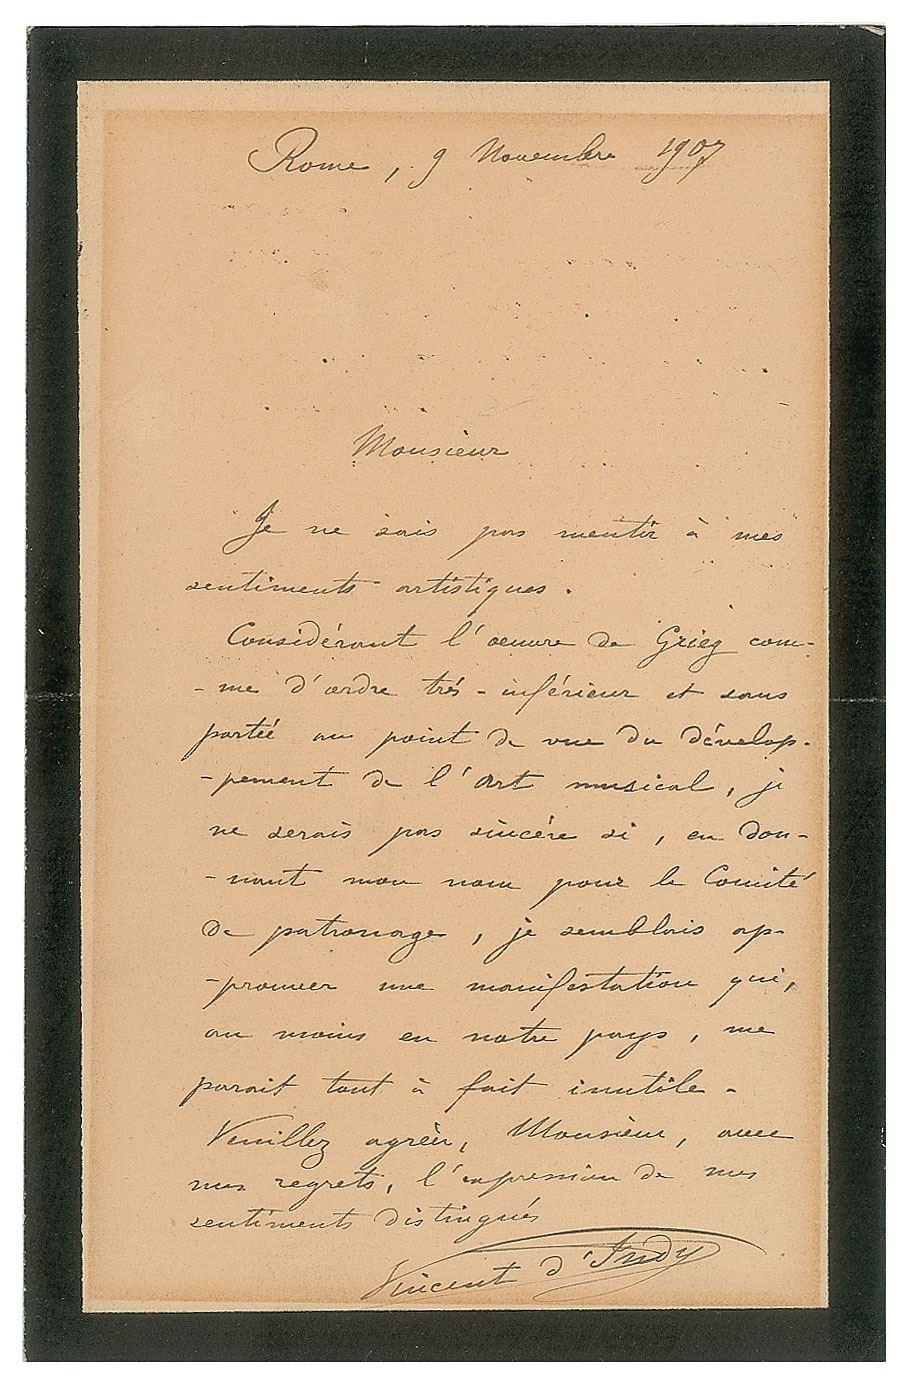 Rome, 9 Novembre 1907
Monsieur
Je ne sais pas mentir à mes
sentiments artistiques.
Considérant l'oeuvre de Grieg com-
-me d'ordre très-inférieur et sans
portée au point de vue du dévelop-
-pement de l'Art musical, je
ne serais pas sincère si, en don-
-nant mon nom pour le Comité
de patronage, je semblais ap-
-prouver une manifestation qui,
au moins en notre pays, me
parait tout à fait inutile.
Veuillez agréer, Monsieur, avec
mes regrets, l'expression de mes
sentiments distingués
Vincent d'Indy